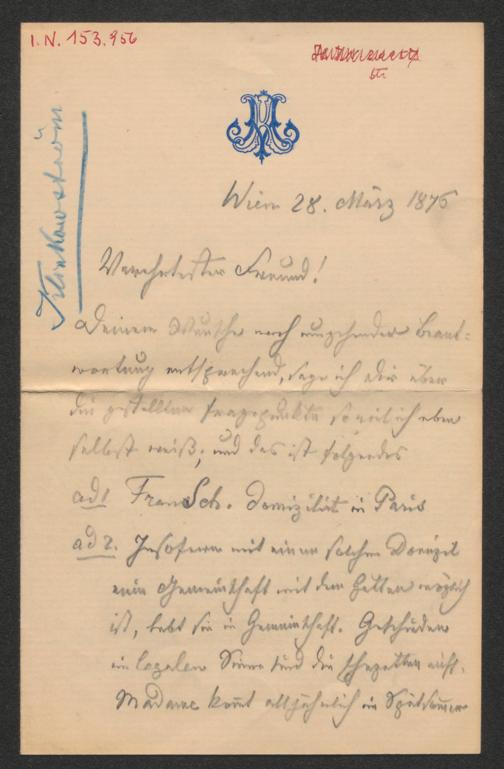 I. N. 153.956
Klinkowström
Wien 28. März 1876
Verehrtester Freund!
Deinem Wunsche nach umgehender Beant-
wortung entsprechend, sage ich Dir über
die gestellten Fragepunkte soviel ich eben
selbst weiß; und das ist folgendes
ad 1 Frau Sch. domizilirt in Paris
ad 2. Insoferne mit einem solchen Domizil
eine Gemeinschaft mit dem Gatten möglich
ist, lebt sie in Gemeinschaft. Geschieden
im legalen Sinne sind die Ehegatten nicht.
Madame komt alljährlich im Spätsommer